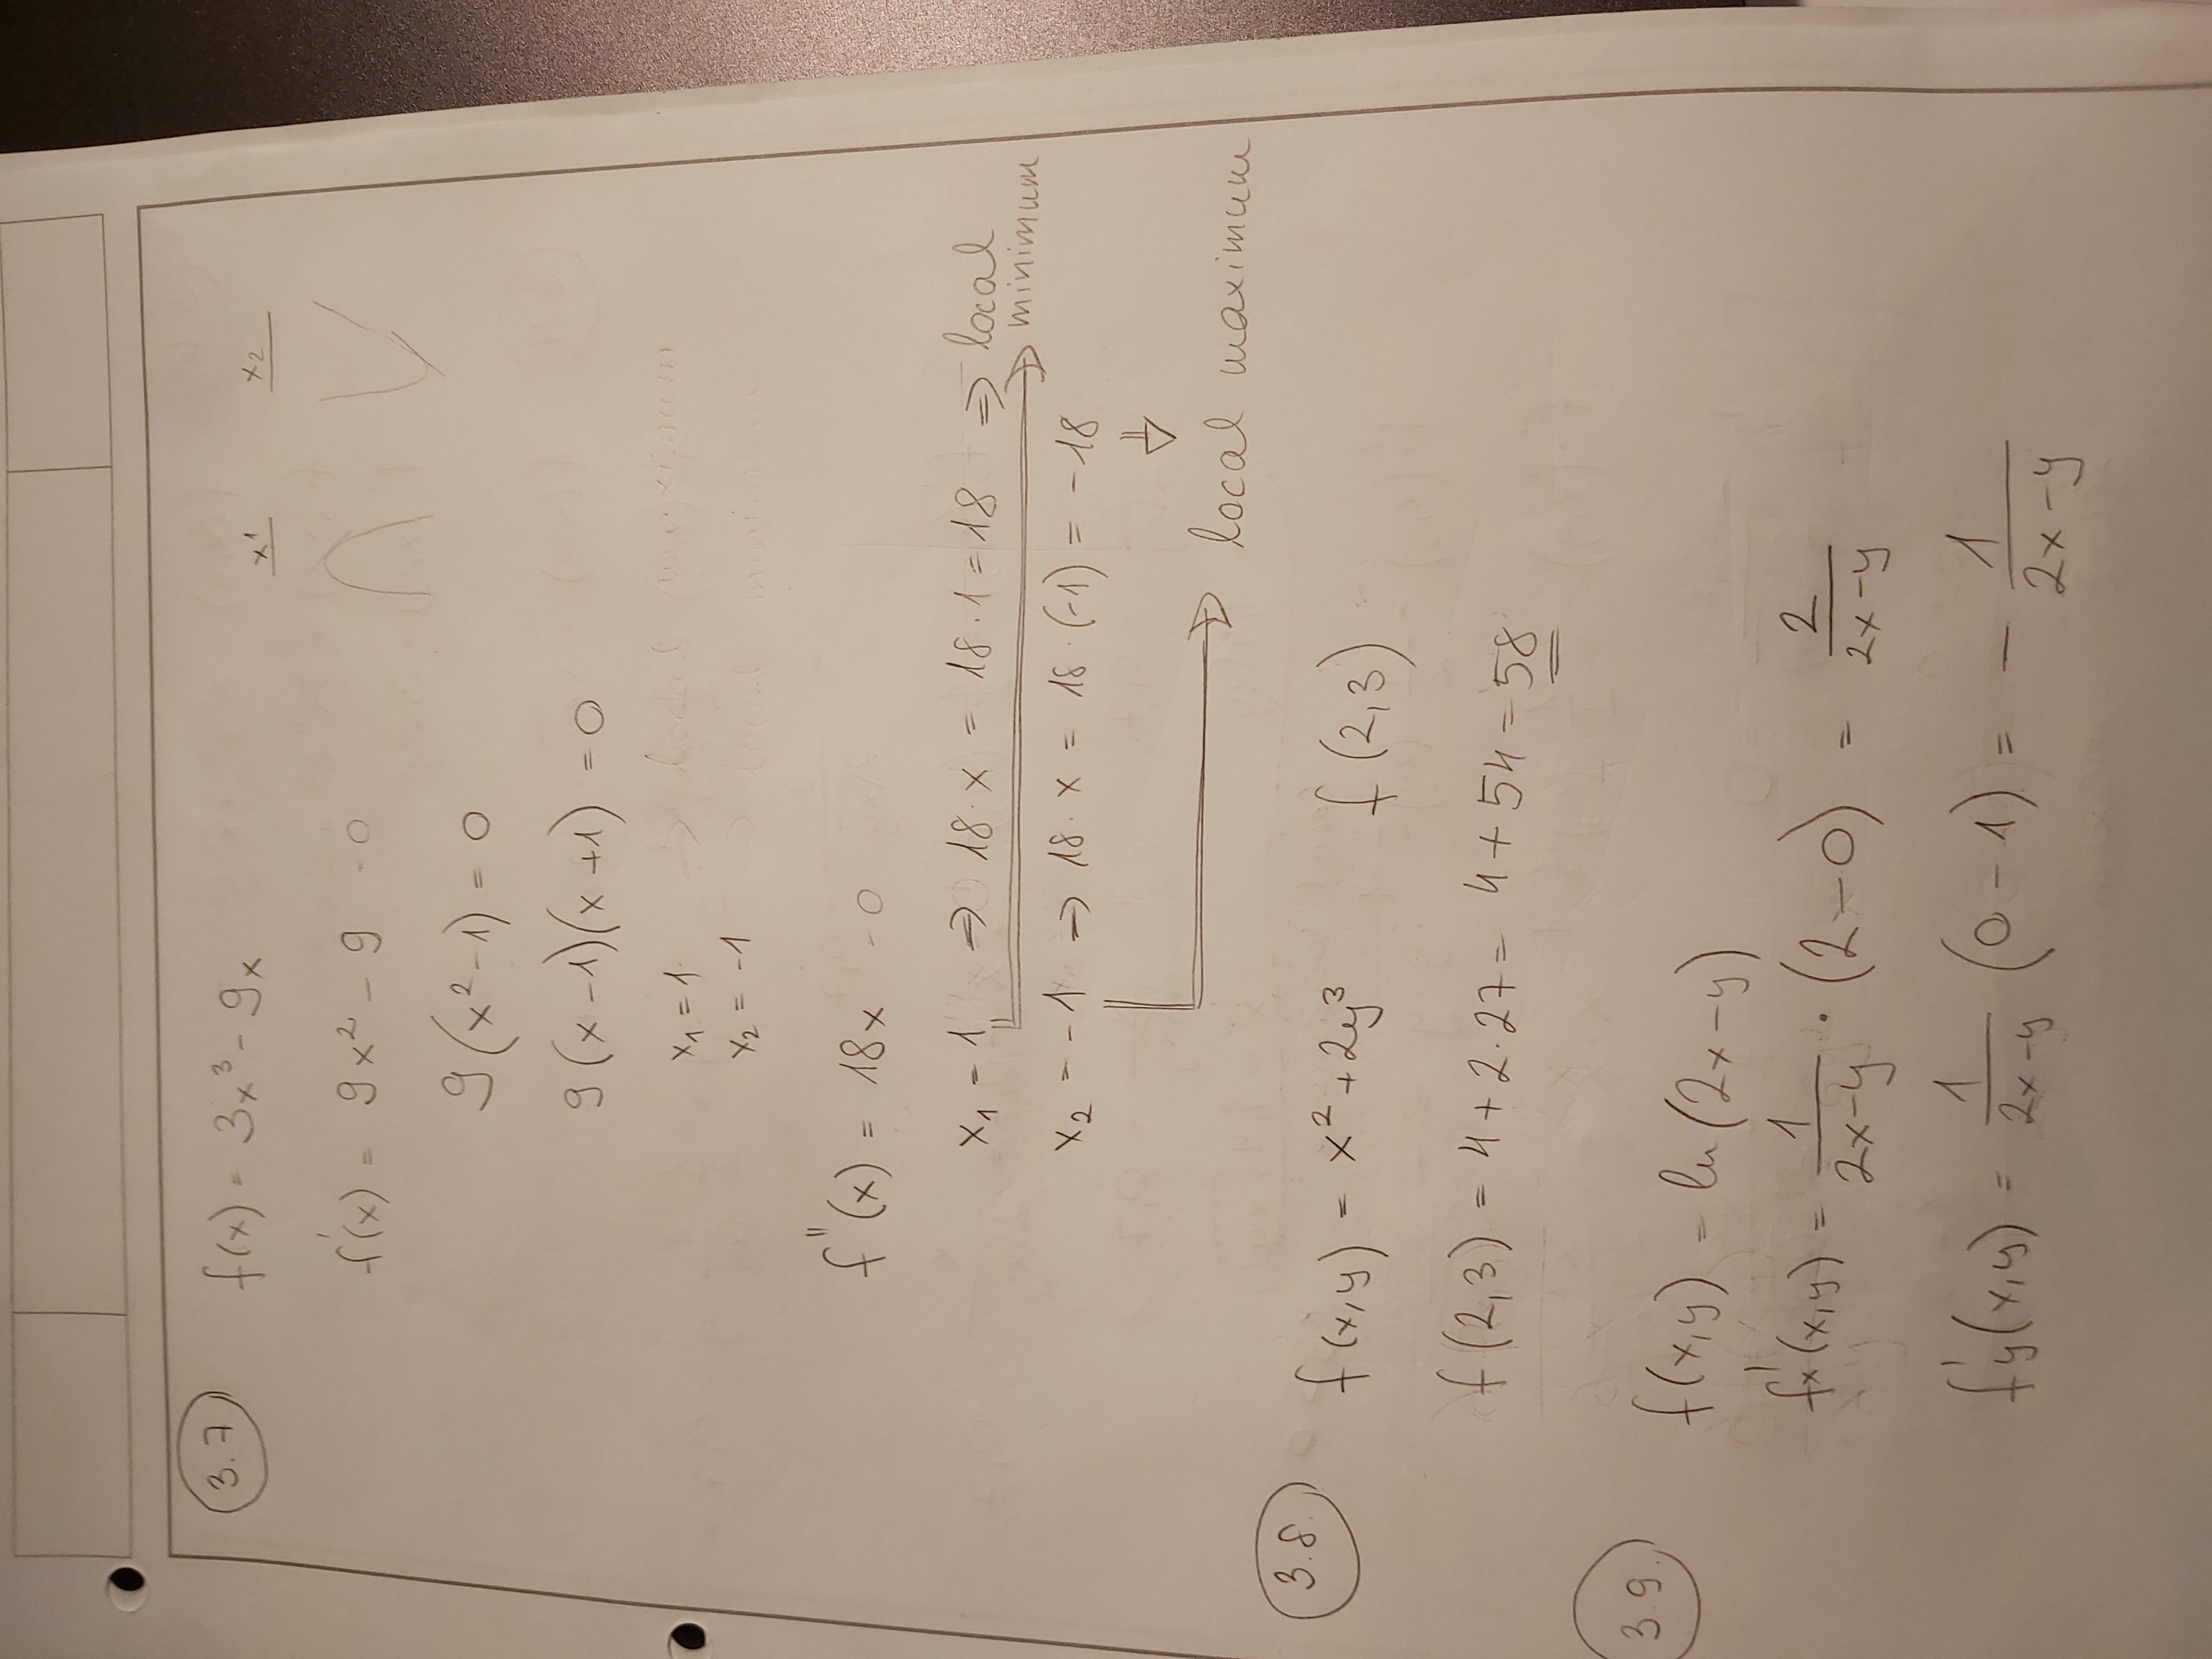 3.7
f(x) = 3x³ - 9x
x1 x2
f'(x) = 9x² - 9 = 0
9(x² - 1) = 0
9(x - 1)(x + 1) = 0
x₁ = 1 → local maximum
x₂ = -1 → local minimum
f''(x) = 18x = 0
x₁ = 1 ⇒ 18 · x = 18 · 1 = 18 ⇒ local
minimum
x₂ = -1 ⇒ 18 · x = 18 · (-1) = -18
⇓
local maximum
3.8.
f(x,y) = x² + 2y³ f(2,3)
f(2,3) = 4 + 2·27 = 4 + 54 = 58
3.9.
f(x,y) = ln(2x - y)
f'x(x,y) = 1/(2x-y) · (2 - 0) = 2/(2x-y)
f'y(x,y) = 1/(2x-y) (0 - 1) = - 1/(2x-y)